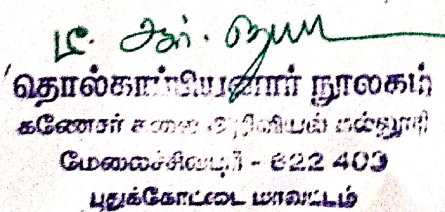 டீ. ஆர்.
தொல்காப்பியனார் நூலகம்
கணேசர் கலை அறிவியல் கல்லூரி
மேலைச்சிவபுரி - 622 403
புதுக்கோட்டை மாவட்டம்